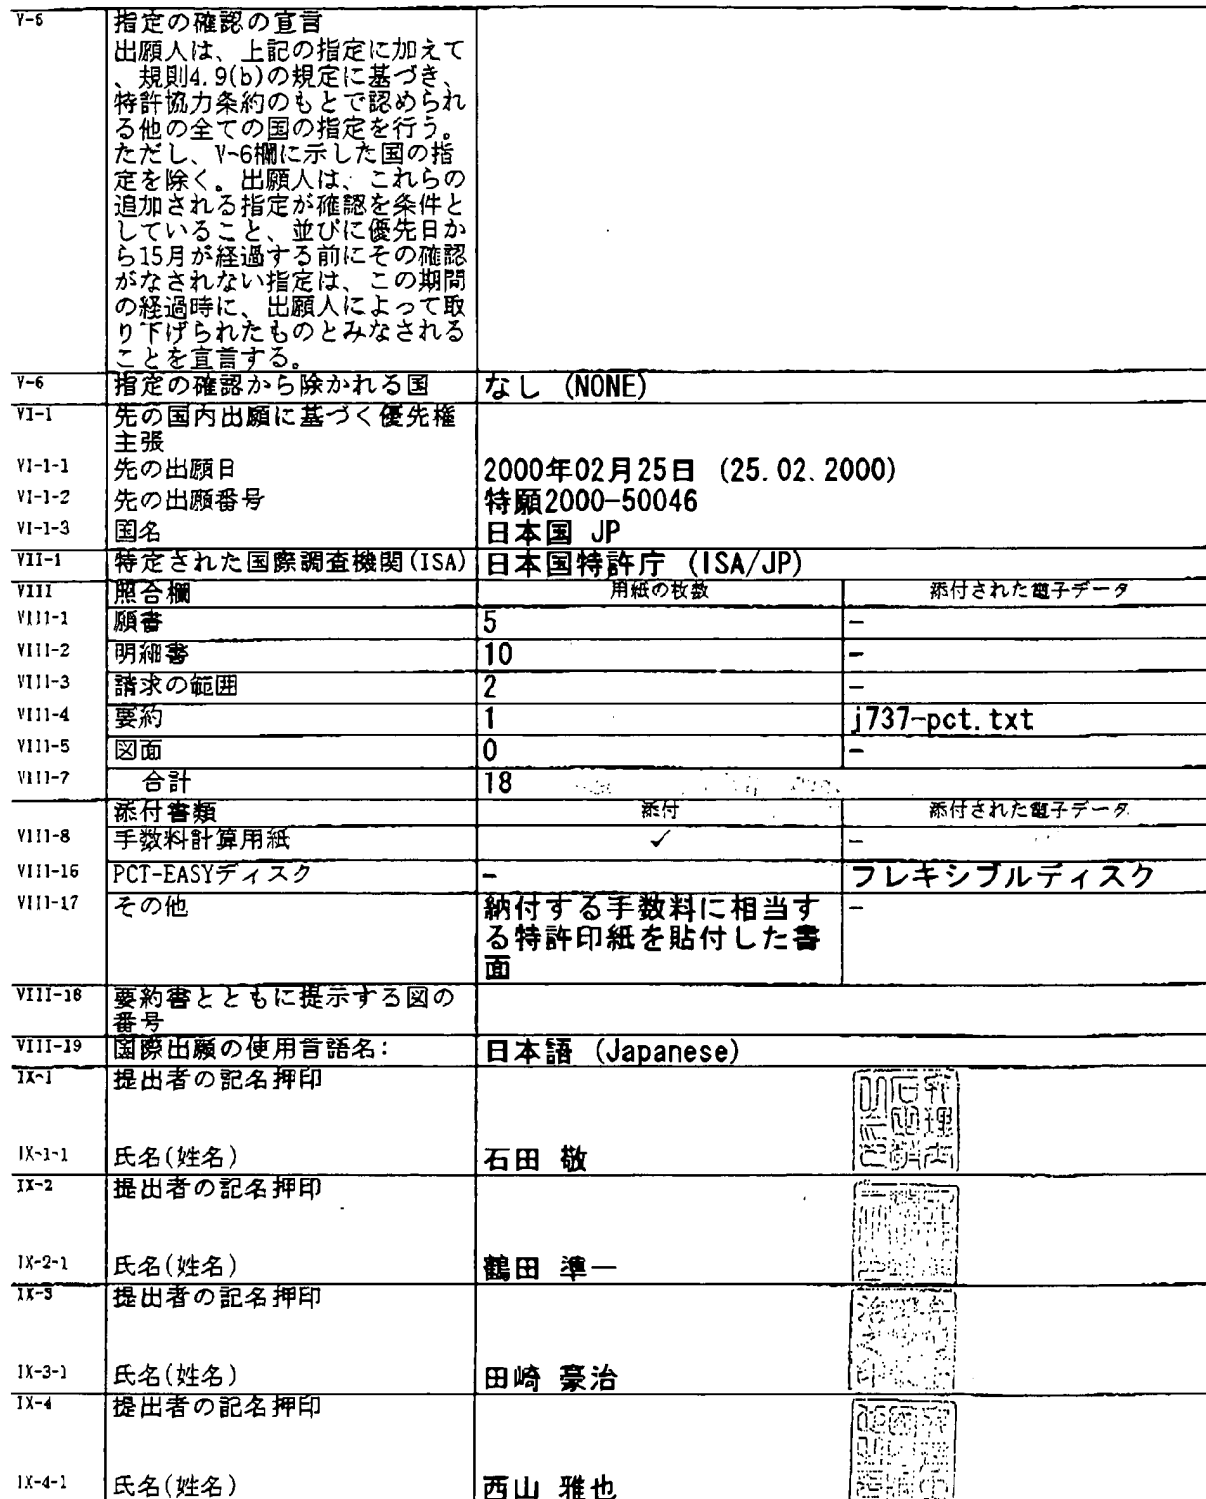 V-5 指定の確認の宣言
出願人は、上記の指定に加えて
、規則4.9(b)の規定に基づき、
特許協力条約のもとで認められ
る他の全ての国の指定を行う。
ただし、V-6欄に示した国の指
定を除く。出願人は、これらの
追加される指定が確認を条件と
していること、並びに優先日か
ら15月が経過する前にその確認
がなされない指定は、この期間
の経過時に、出願人によって取
り下げられたものとみなされる
ことを宣言する。
V-6 指定の確認から除かれる国 なし (NONE)
VI-1 先の国内出願に基づく優先権
主張
VI-1-1 先の出願日 2000年02月25日 (25.02.2000)
VI-1-2 先の出願番号 特願2000-50046
VI-1-3 国名 日本国 JP
VII-1 特定された国際調査機関(ISA) 日本国特許庁 (ISA/JP)
VIII 照合欄 用紙の枚数 添付された電子データ
VIII-1 願書 5 -
VIII-2 明細書 10 -
VIII-3 請求の範囲 2 -
VIII-4 要約 1 j737-pct.txt
VIII-5 図面 0 -
VIII-7 合計 18
添付書類 添付 添付された電子データ
VIII-8 手数料計算用紙 ✓ -
VIII-16 PCT-EASYディスク - フレキシブルディスク
VIII-17 その他 納付する手数料に相当す -
る特許印紙を貼付した書
面
VIII-18 要約書とともに提示する図の
番号
VIII-19 国際出願の使用言語名: 日本語 (Japanese)
IX-1 提出者の記名押印
IX-1-1 氏名(姓名) 石田 敬
IX-2 提出者の記名押印
IX-2-1 氏名(姓名) 鶴田 準一
IX-3 提出者の記名押印
IX-3-1 氏名(姓名) 田崎 豪治
IX-4 提出者の記名押印
IX-4-1 氏名(姓名) 西山 雅也